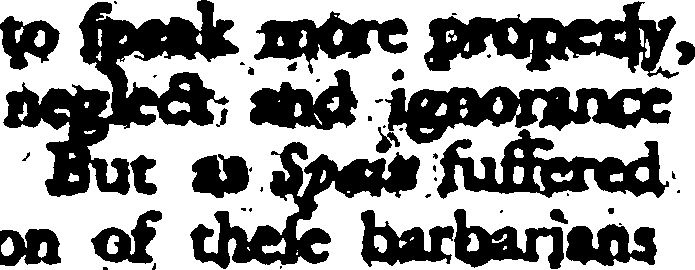 to ſpeak more properly,
neglect and ignorance
But as Spain ſuffered
on of theſe barbarians